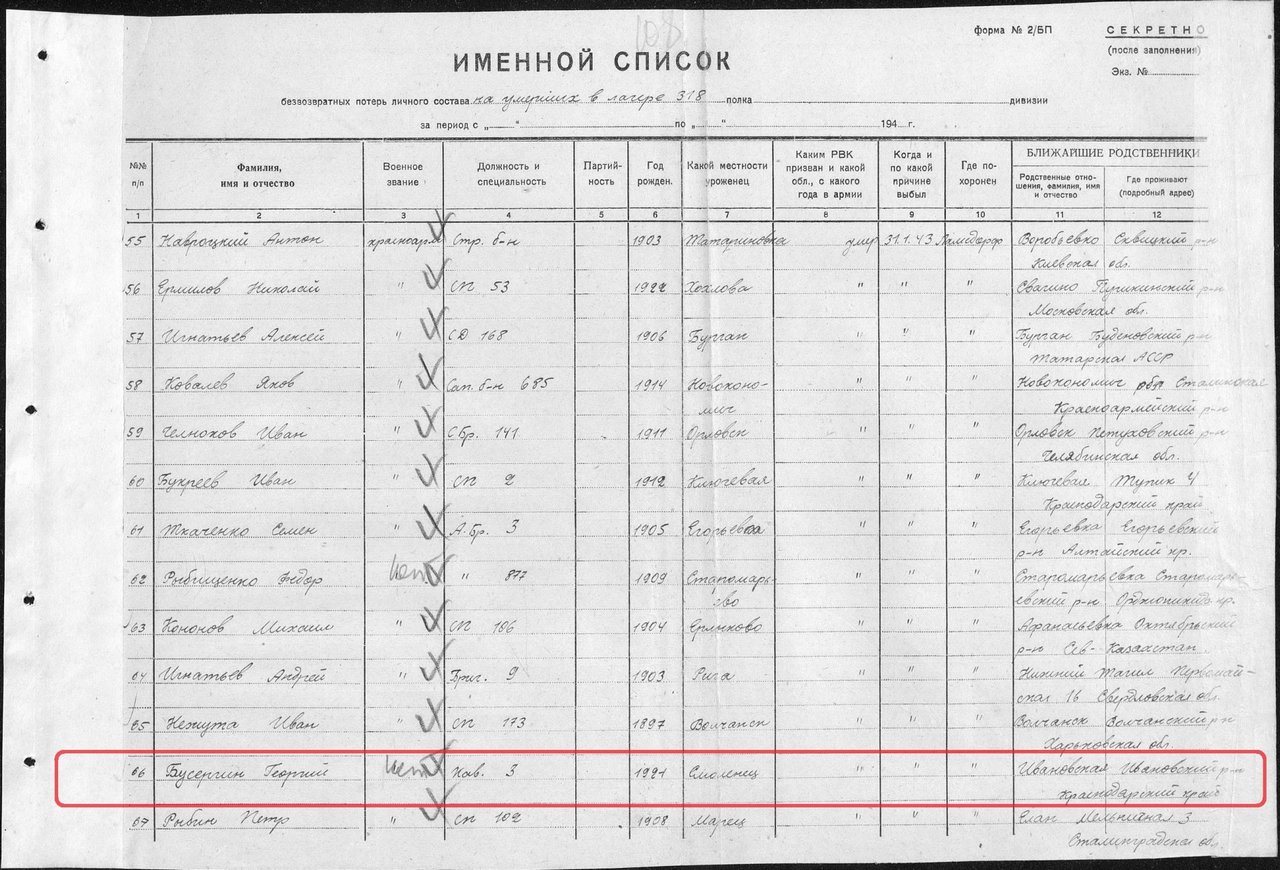 108
форма № 2/БП
СЕКРЕТНО
(после заполнения)
Экз. №
ИМЕННОЙ СПИСОК
безвозвратных потерь личного состава на умерших в лагере 318 полка дивизии
за период с „ “ по „ “ 194 г.
№№ п/п
Фамилия, имя и отчество
Военное звание
Должность и специальность
Партийность
Год рожден.
Какой местности уроженец
Каким РВК призван и какой обл., с какого года в армии
Когда и по какой причине выбыл
Где похоронен
БЛИЖАЙШИЕ РОДСТВЕННИКИ
Родственные отношения, фамилия, имя и отчество
Где проживают (подробный адрес)
1 2 3 4 5 6 7 8 9 10 11 12
55 Навроцкий Антон красноарм Стр. б-н 1903 Татариновка умер 31.1.43 Ламсдорф Воробьевко Сквицкий р-н
Киевская обл.
56 Ермилов Николай " СП 53 1922 Хохлова " " " Свагино Пушкинский р-н
Московская обл.
57 Игнатьев Алексей " СД 168 1906 Бурган " " " Бурган Буденовский р-н
Татарская АССР
58 Ковалев Яков " Сап. б-н 685 1914 Новоконо- " " " Новокономич обл Сталинская
мич Красноармейский р-н
59 Челноков Иван " С Бр. 141 1911 Орловск " " " Орловск Петуховский р-н
Челябинская обл.
60 Букреев Иван " СП 2 1912 Ключевая " " " Ключевая Тупик 4
Краснодарский край
61 Ткаченко Семен " А. Бр. 3 1905 Егорьевка " " " Егорьевка Егорьевский
р-н Алтайский кр.
62 Рыбищенко Федор " 877 1909 Старомарь- " " " Старомарьевка Старомарь-
ево евский р-н Орджоникидз. кр.
63 Кононов Михаил " СП 106 1904 Ерликово " " " Афанасьевка Октябрьский
р-н Сев-Казахстан
64 Игнатьев Андрей " Бриг. 9 1903 Рига " " " Нижний Тагил Первомай-
ская 16 Свердловская обл.
65 Нежута Иван " СП 173 1897 Волчанск " " " Волчанск Волчанский р-н
Харьковская обл.
66 Бусергин Георгий Кав. 3 1921 Смоленец " " " Ивановская Ивановский р-н
Краснодарский край
67 Рыбин Петр " СП 102 1908 Марец " " " Елап Мельничная 3
Сталинградская об.